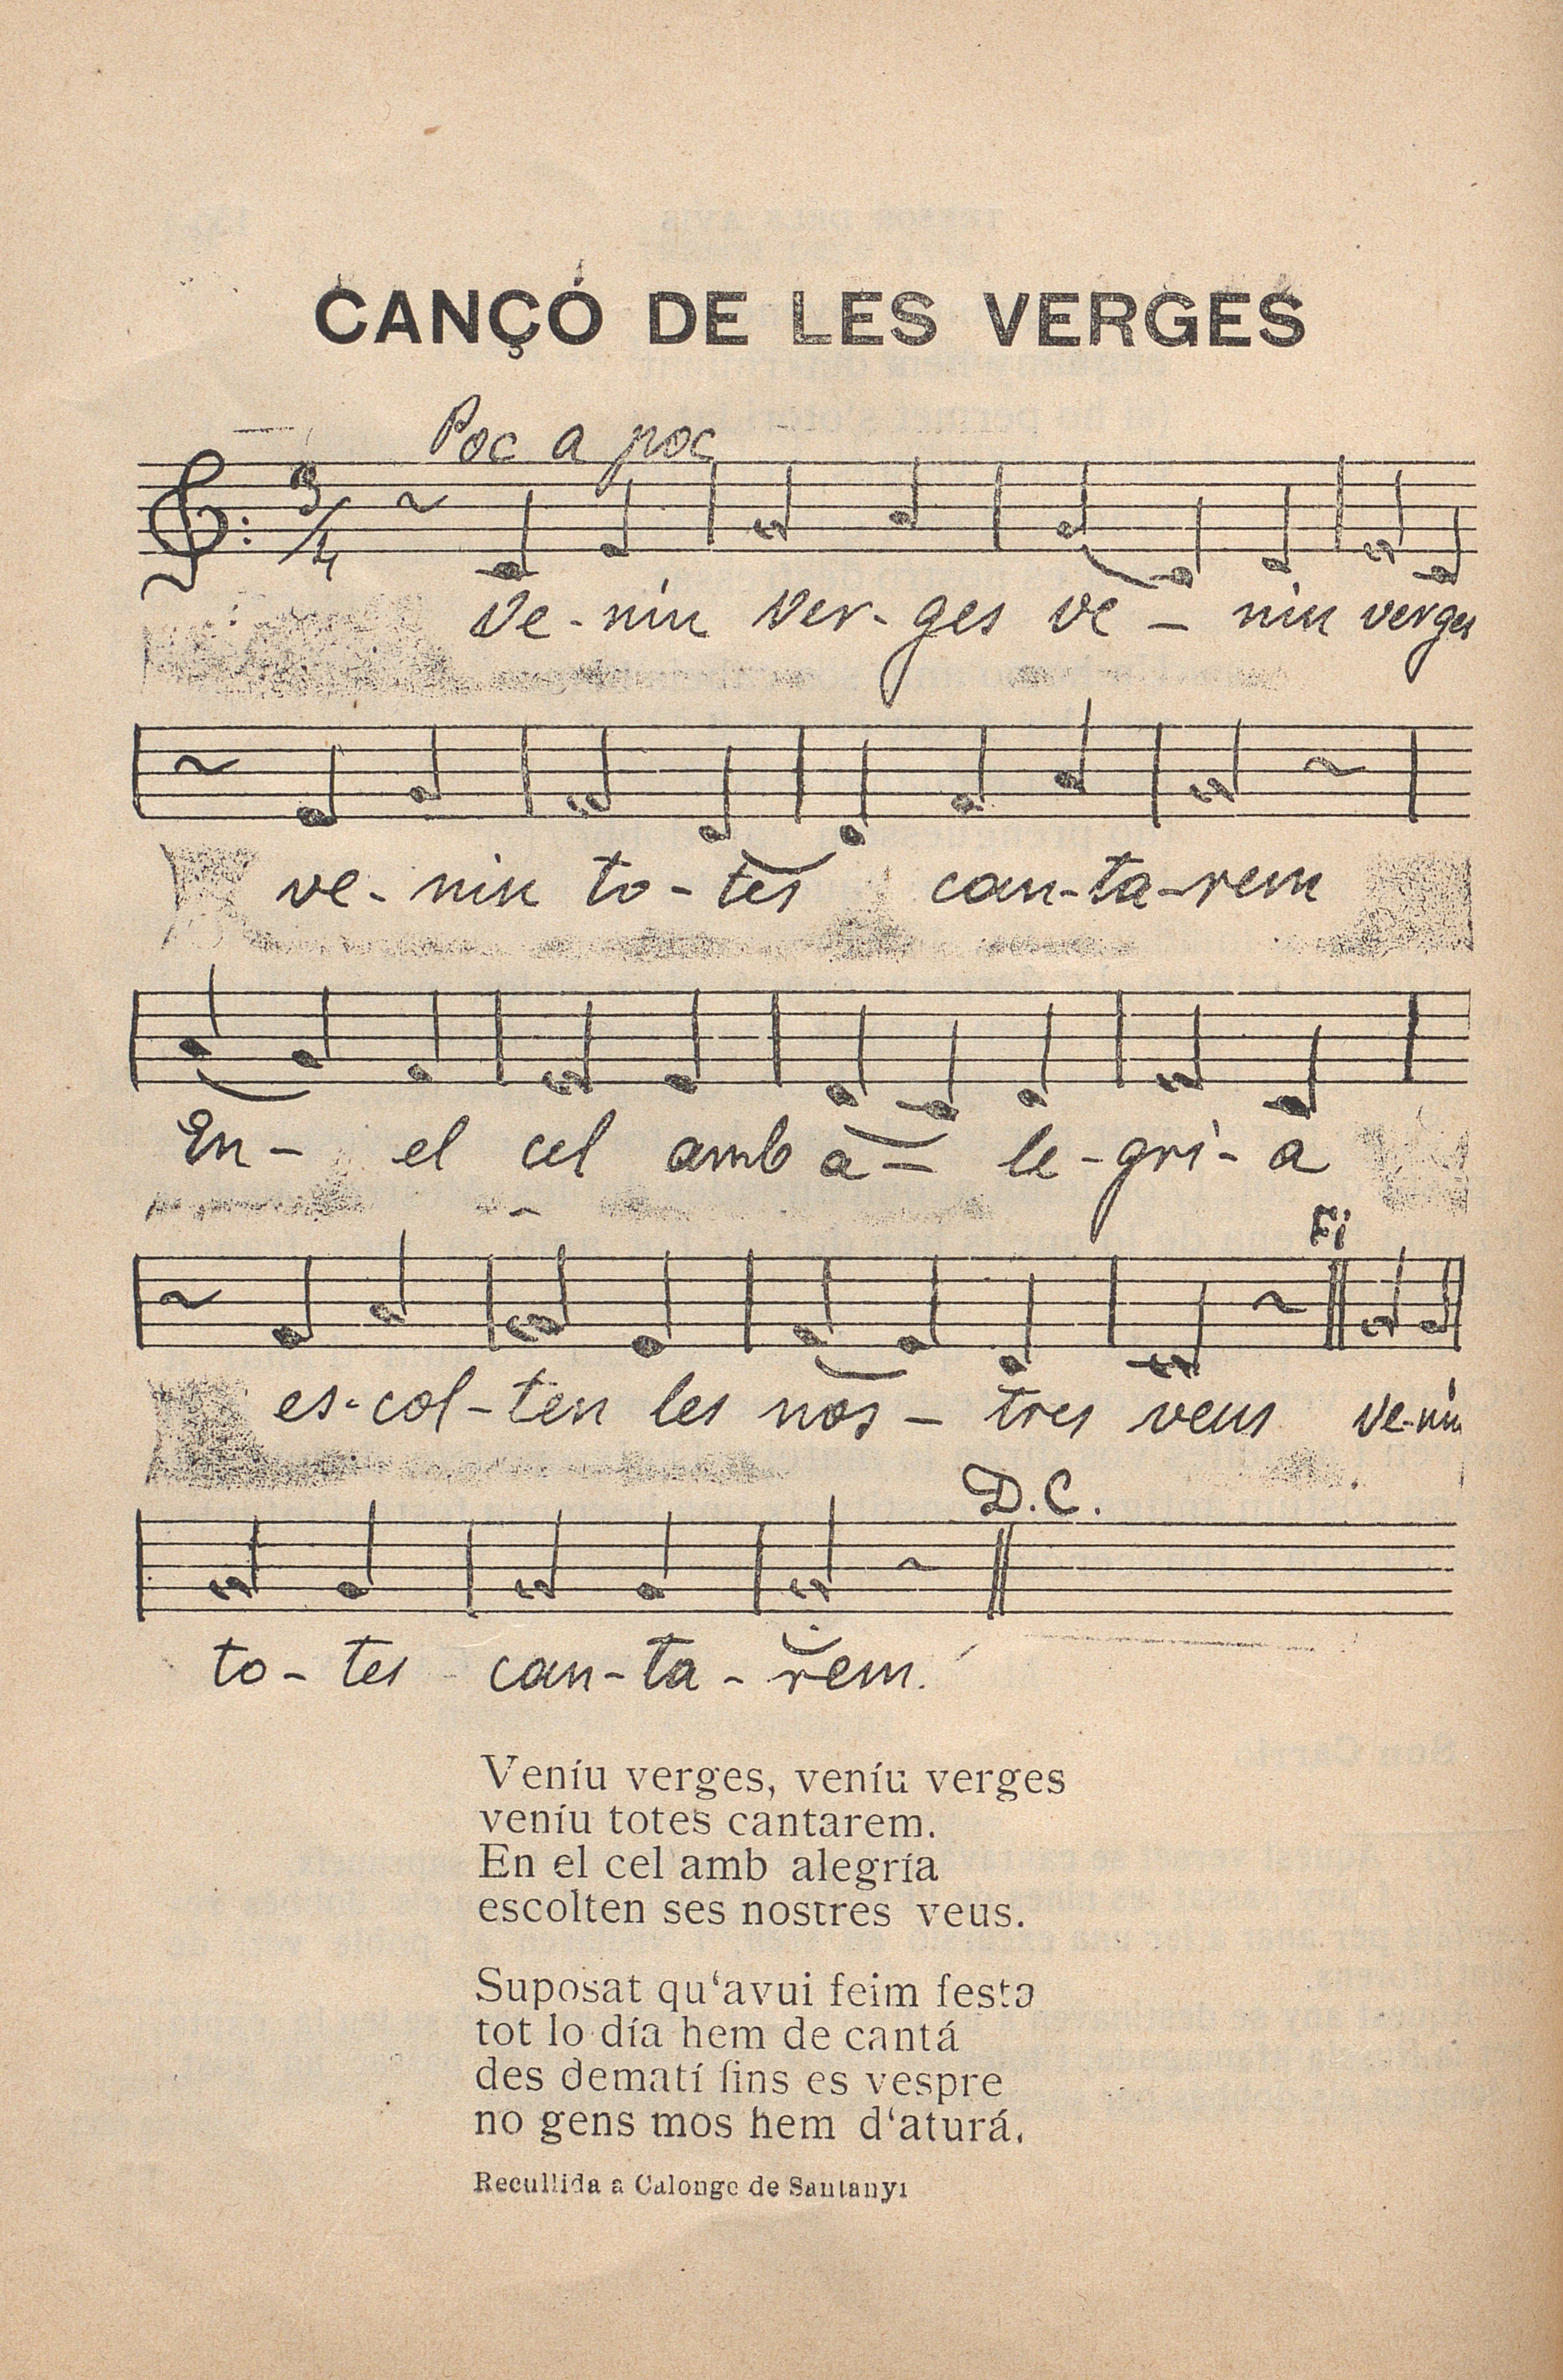 CANÇÓ DE LES VERGES
Poc a poc
3/4
Ve-niu Ver-ges ve-niu verges
ve-niu to-tes can-ta-rem
En- el cel amb a-le-grì-a
Fi
es-col-ten les nos-tres veus ve-niu
D.C.
to-tes can-ta-rem.
Veníu verges, veníu verges
veníu totes cantarem.
En el cel amb alegría
escolten ses nostres veus.
Suposat qu‘avui feim festa
tot lo día hem de cantá
des dematí fins es vespre
no gens mos hem d‘aturá.
Recullida a Calonge de Santanyí